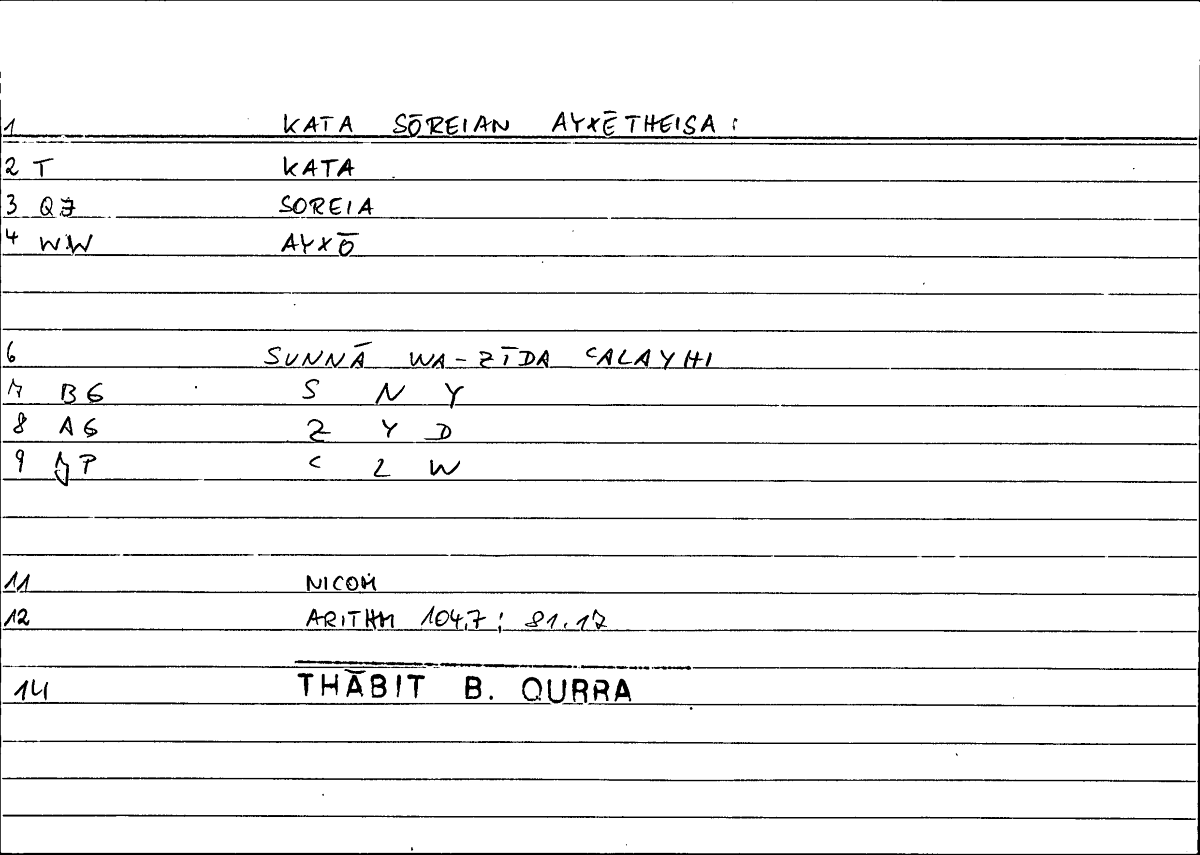 1 KATA SŌREIAN AYXĒTHEISA :
2 T KATA
3 QZ SOREIA
4 WW AYXŌ
6 SUNNĀ WA-ZĪDA CALAYHI
7 BG S N Y
8 AG Z Y D
9 P C L W
11 NICOM
12 ARITHM 104,7; 81.17
14 THĀBIT B. QURRA